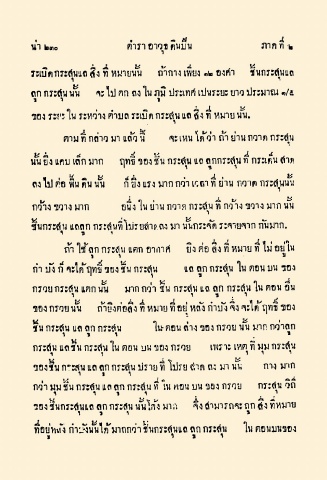 น่า ๒๓๐ ตำรา อาวุธ ดินปืน ภาค ที่ ๒
ระเบิด กระสุนแล สิ่ง ที่ หมายนั้น ถ้ากาง เพียง ๑๒ องศา ชิ้นกระสุนแล
ลูก กระสุน นั้น จะ ไป ตก ลง ใน ภูมิ ประเทศ เปนระยะ ยาว ประมาณ ๑/๕
ของ ระยะ ใน ระหว่าง ตำบล ระเบิด กระสุน แล สิ่ง ที่ หมาย นั้น.
ตาม ที่ กล่าว มา แล้ว นี้ จะ เหน ได้ ว่า ถ้า ย่าน กวาด กระสุน
นั้น ยิ่ง แคบ เล็ก มาก ฤทธิ์ ของ ชิ้น กระสุน แล ลูกกระสุน ที่ กระเด็น สาด
ลง ไป ต่อ พื้น ดิน นั้น ก็ ยิ่ง แรง มาก กว่า เวลา ที่ ย่าน กวาด กระสุนนั้น
กว้าง ขวาง มาก อนึ่ง ใน ย่าน กวาด กระสุน ที่ กว้าง ขวาง มาก นั้น
ชิ้นกระสุน แล ลูก กระสุนที่ โปรยสาด ลง มา นั้นกระจัด ระจายจาก กันมาก.
ถ้า ใช้ ลูก กระสุน แตก อากาศ ยิง ต่อ สิ่ง ที่ หมาย ที่ ไม่ อยู่ใน
กำ บัง ก็ จะได้ ฤทธิ์ ของ ชิ้น กระสุน แล ลูก กระสุน ใน ตอน บน ของ
กรวย กระสุน แตก นั้น มาก กว่า ชิ้น กระสุน แล ลูก กระสุน ใน ตอน อื่น
ของ กรวย นั้น ถ้ายิงต่อสิ่ง ที่ หมาย ที่ อยู่ หลัง กำบัง จึ่ง จะได้ ฤทธิ์ ของ
ชิ้น กระสุน แล ลูก กระสุน ใน ตอน ล่าง ของ กรวย นั้น มาก กว่าลูก
กระสุน แล ชิ้น กระสุน ใน ตอน บน ของ กรวย เพราะ เหตุ ที่ มุม กระสุน
ของ ชิ้น กระสุน แล ลูก กระสุน ปราย ที่ โปรย สาด ลง มา นั้น กาง มาก
กว่า มุม ชิ้น กระสุน แล ลูก กระสุน ที่ ใน ตอน บน ของ กรวย กระสุน วิถี
ของ ชิ้นกระสุนแล ลูก กระสุน นั้นโค้ง มาก จึ่ง สามารถจะ ถูก สิ่ง ที่หมาย
ที่อยู่หลัง กำบังนั้นได้ มากกว่า ชิ้นกระสุนแล ลูก กระสุน ใน ตอนบนของ